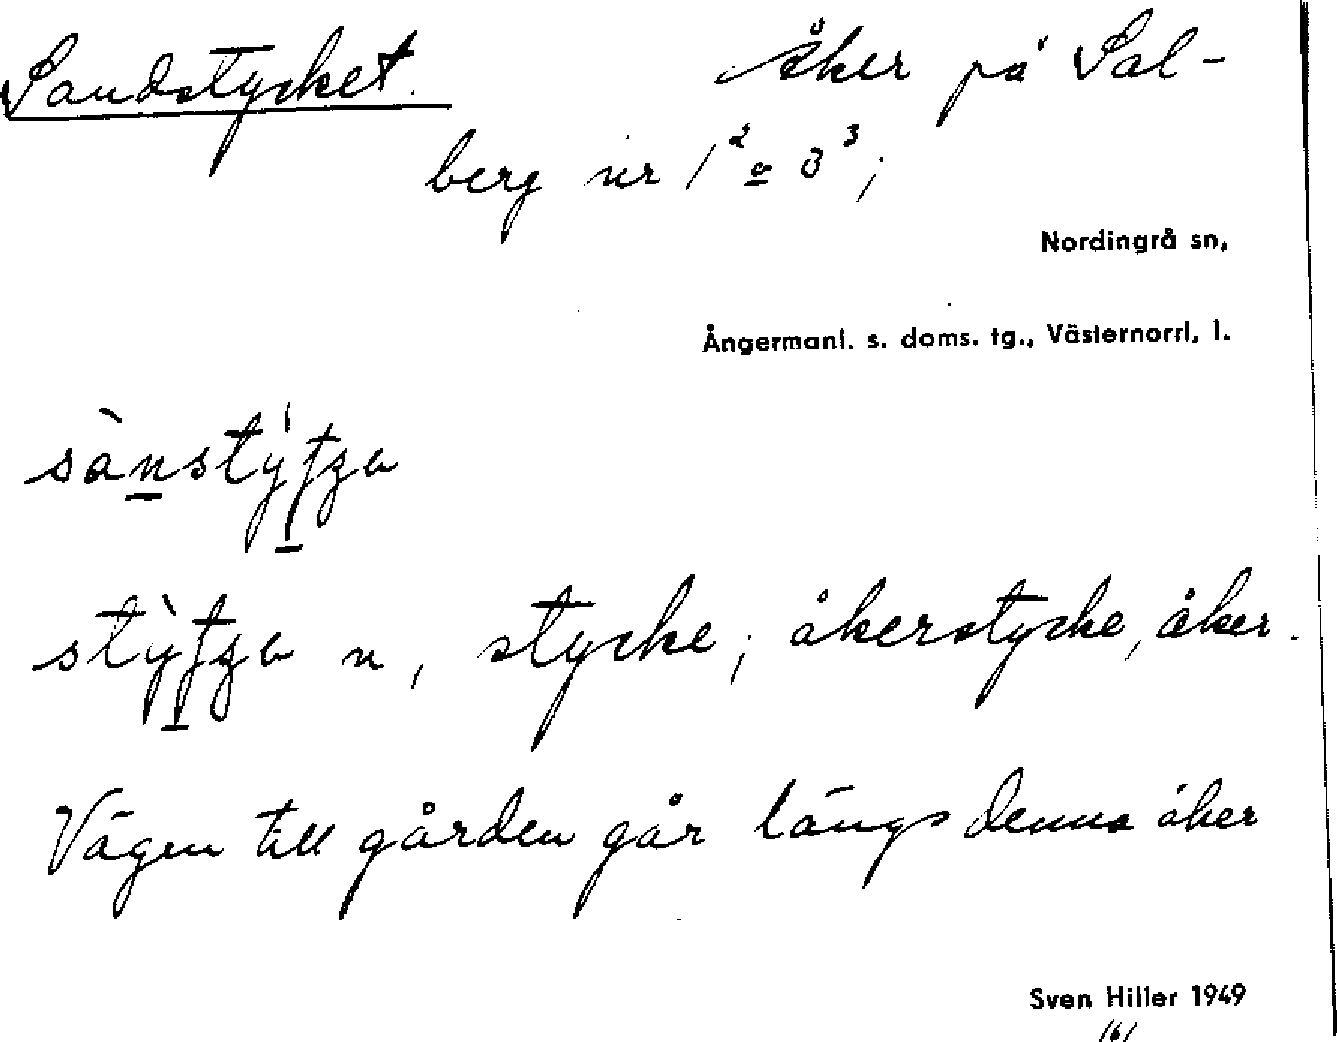 Sandstycket. Åker på Sal-
berg nr 1² o 3³;
Nordingrå sn,
Ångermanl. s. doms. tg., Västernorrl. l.
n, stycke; åkerstycke, åker.
Vägen till gården går längs denna åker
Sven Hiller 1949
161